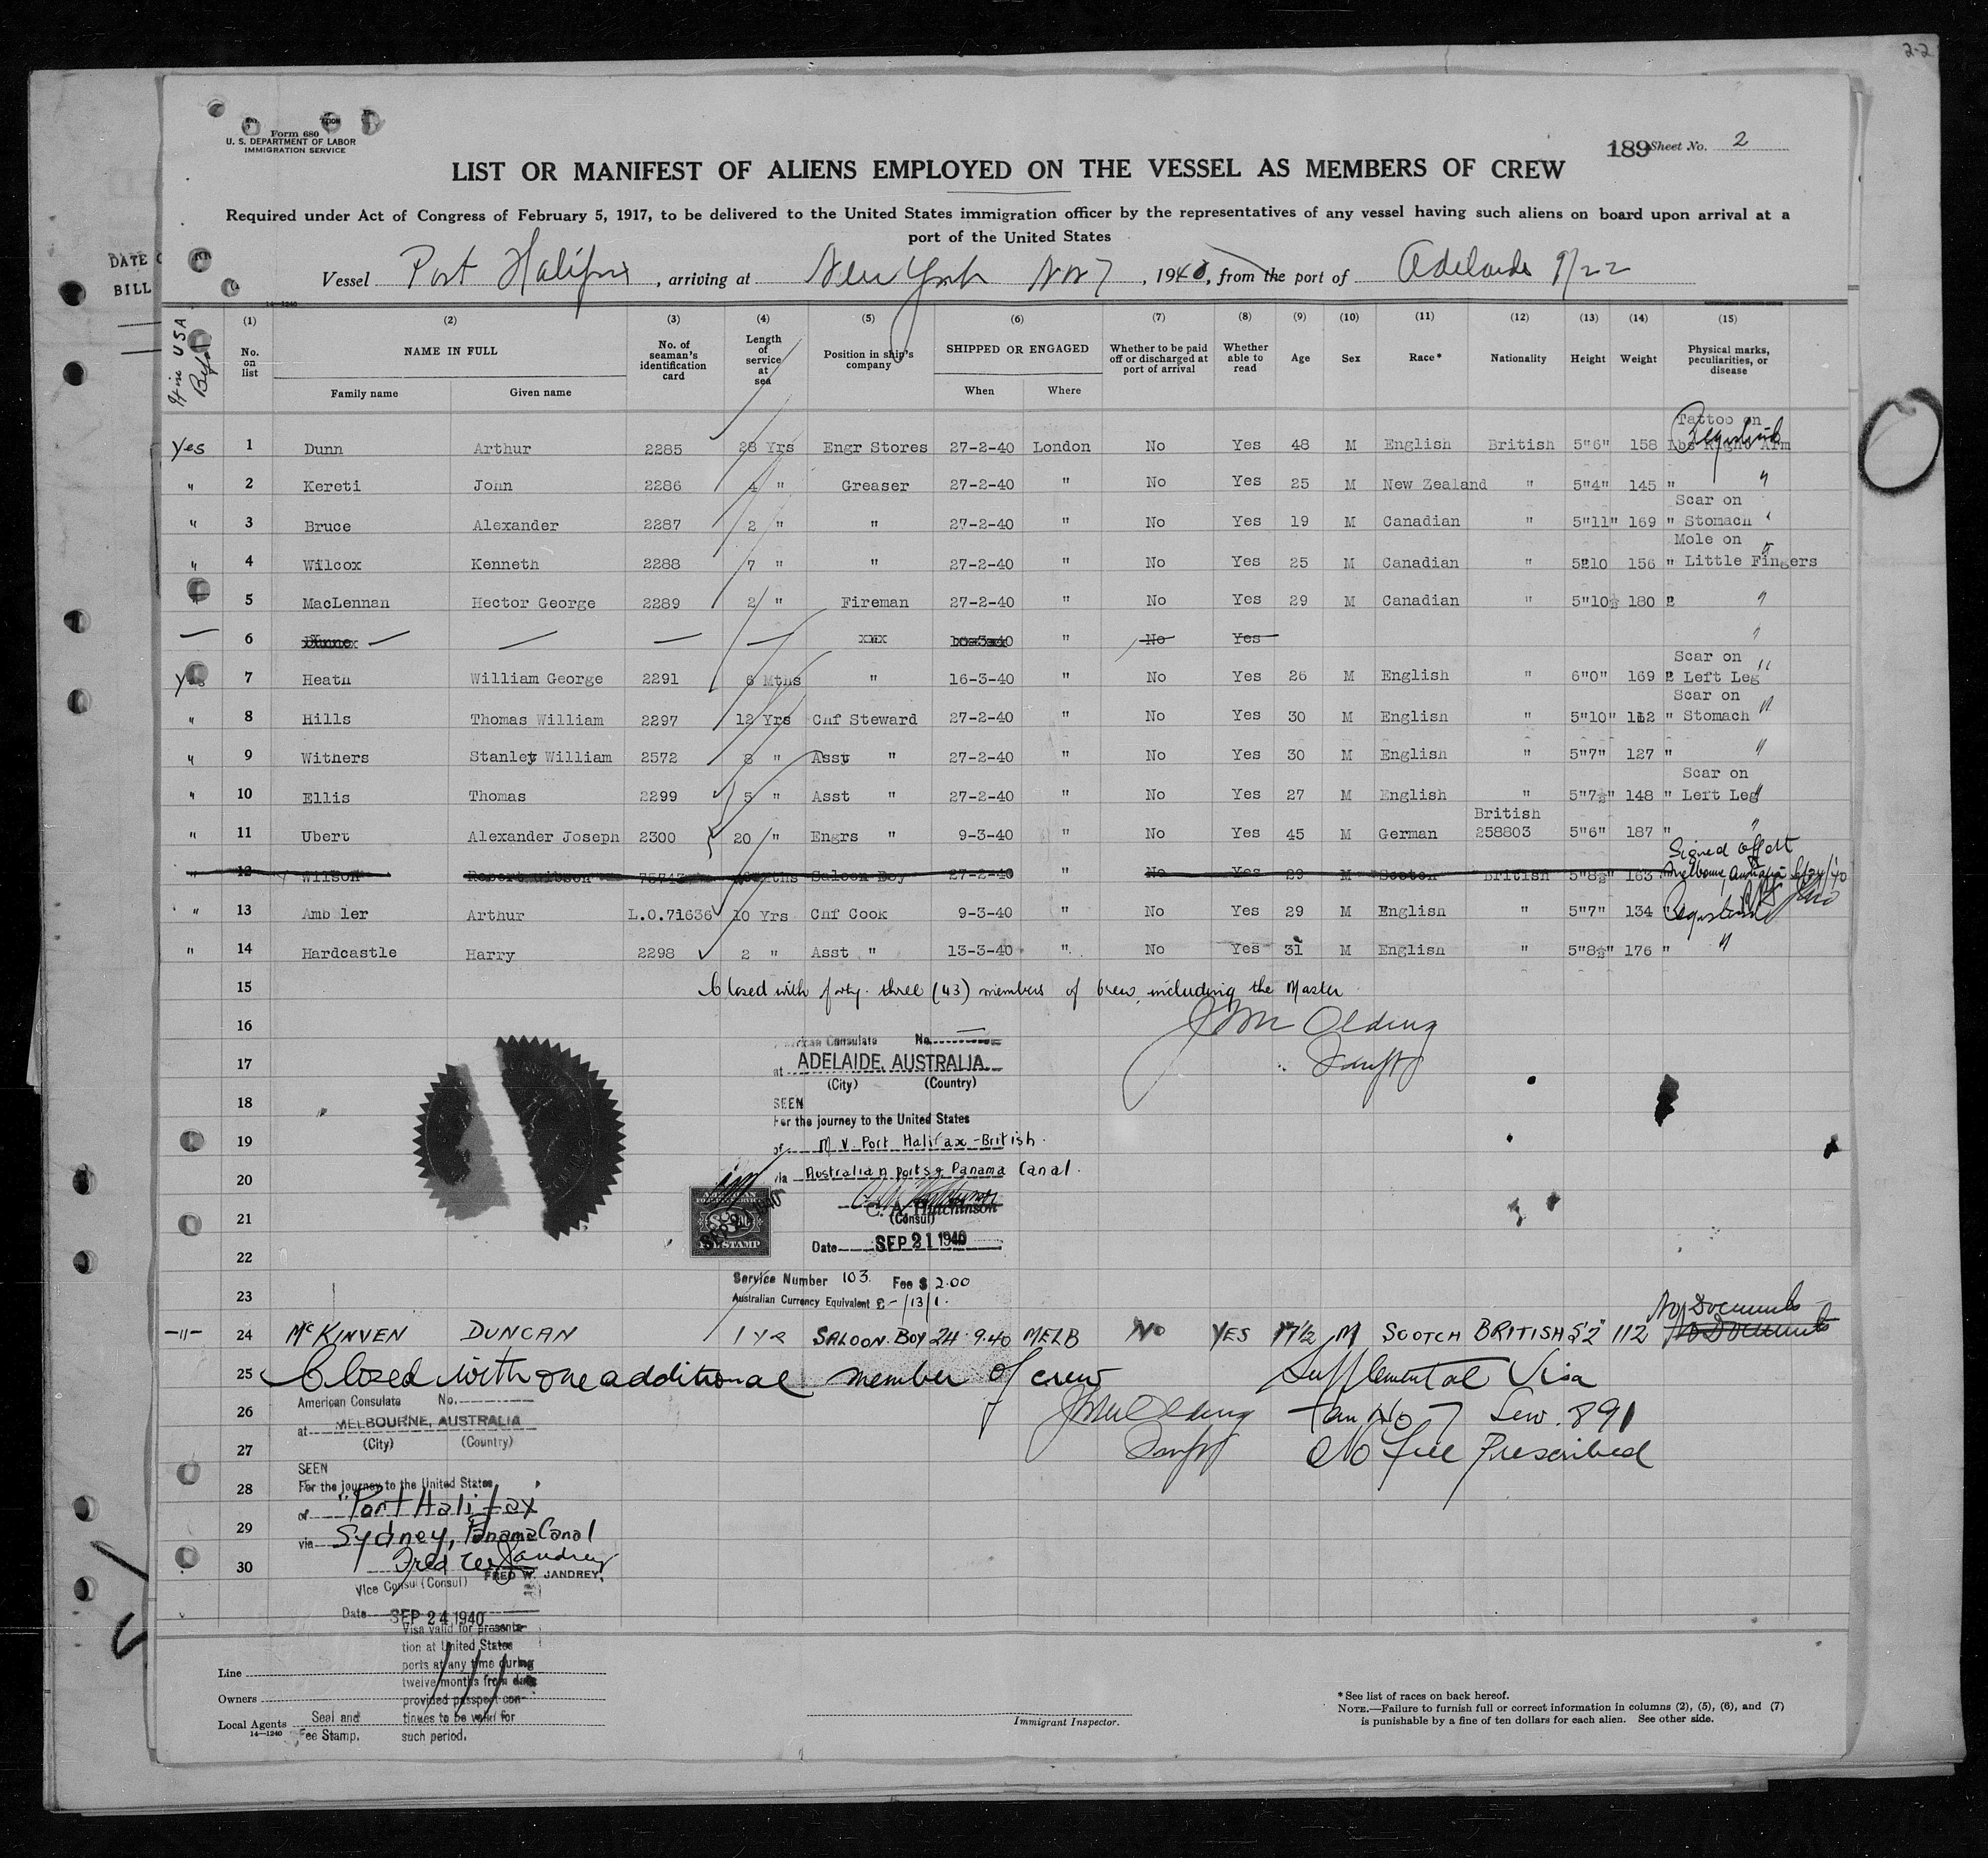 2-2
Form 680
U. S. DEPARTMENT OF LABOR
IMMIGRATION SERVICE
189 Sheet No. 2
LIST OR MANIFEST OF ALIENS EMPLOYED ON THE VESSEL AS MEMBERS OF CREW
Required under Act of Congress of February 5, 1917, to be delivered to the United States immigration officer by the representatives of any vessel having such aliens on board upon arrival at a
port of the United States
DATE
BILL
Vessel Port Halifax, arriving at New York Nov 7, 1940, from the port of Adelaide 9/22
14—1240
(1) (2) (3) (4) (5) (6) (7) (8) (9) (10) (11) (12) (13) (14) (15)
No. on list NAME IN FULL Family name Given name No. of seaman's identification card Length of service at sea Position in ship's company SHIPPED OR ENGAGED When Where Whether to be paid off or discharged at port of arrival Whether able to read Age Sex Race* Nationality Height Weight Physical marks, peculiarities, or disease
Tattoo on
Yes 1 Dunn Arthur 2285 28 Yrs Engr Stores 27-2-40 London No Yes 48 M English British 5"6" 158 Lbs Right Arm
" 2 Kereti John 2286 4 " Greaser 27-2-40 " No Yes 25 M New Zealand " 5"4" 145 " "
Scar on
" 3 Bruce Alexander 2287 2 " " 27-2-40 " No Yes 19 M Canadian " 5"11" 169 " Stomach "
Mole on
" 4 Wilcox Kenneth 2288 7 " " 27-2-40 " No Yes 25 M Canadian " 5"10 156 " Little Fingers "
5 MacLennan Hector George 2289 2 " Fireman 27-2-40 " No Yes 29 M Canadian " 5"10½ 180 " "
— 6 — — — — xxx " No Yes "
Scar on
Yes 7 Heath William George 2291 6 Mths " 16-3-40 " No Yes 26 M English " 6"0" 169 " Left Leg "
Scar on
" 8 Hills Thomas William 2297 12 Yrs Chf Steward 27-2-40 " No Yes 30 M English " 5"10" 112 " Stomach "
" 9 Withers Stanley William 2572 8 " Asst " 27-2-40 " No Yes 30 M English " 5"7" 127 " "
Scar on
" 10 Ellis Thomas 2299 5 " Asst " 27-2-40 " No Yes 27 M English " 5"7½" 148 " Left Leg "
British
" 11 Ubert Alexander Joseph 2300 20 " Engrs " 9-3-40 " No Yes 45 M German 258803 5"6" 187 " "
Signed off at
" 12 Wilson Robert Gibson 75743 Mths Saloon Boy 27-2-40 No Yes 29 M Scotch British 5"8½" 163 Melbourne, Australia
" 13 Ambler Arthur L.O.71636 10 Yrs Chf Cook 9-3-40 " No Yes 29 M English " 5"7" 134 "
" 14 Hardcastle Harry 2298 2 " Asst " 13-3-40 " No Yes 31 M English " 5"8½" 176 " "
15 Closed with forty three (43) members of crew, including the Master
16
American Consulate No.
17 at ADELAIDE, AUSTRALIA
(City) (Country)
18 SEEN
For the journey to the United States
19 of M.V. Port Halifax - British.
20 via Australian ports & Panama Canal.
C. A. Hutchinson
21 (Consul)
22 Date SEP 21 1940
Service Number 103. Fee $ 2.00
23 Australian Currency Equivalent £ -/13/1.
No Documents
—"— 24 McKINVEN DUNCAN 1 YR SALOON BOY 24.9.40 MELB No YES 17½ M SCOTCH BRITISH 5'2" 112 No Documents
25 Closed with one additional member of crew Supplemental Visa
American Consulate No.
26 J M Olding 891
at MELBOURNE, AUSTRALIA
(City) (Country)
27 No fee Prescribed
SEEN
28 For the journey to the United States
of "Port Halifax"
29 via Sydney, Panama Canal
30 Fred W. Jandrey
FRED W. JANDREY,
Vice Consul (Consul)
Date SEP 24 1940
Visa valid for presenta-
tion at United States
ports at any time during
twelve months from date
provided passport con-
tinues to be valid for
such period.
Line
Owners
Local Agents
14—1240
Seal and
Fee Stamp.
Immigrant Inspector.
* See list of races on back hereof.
NOTE.—Failure to furnish full or correct information in columns (2), (5), (6), and (7)
is punishable by a fine of ten dollars for each alien. See other side.